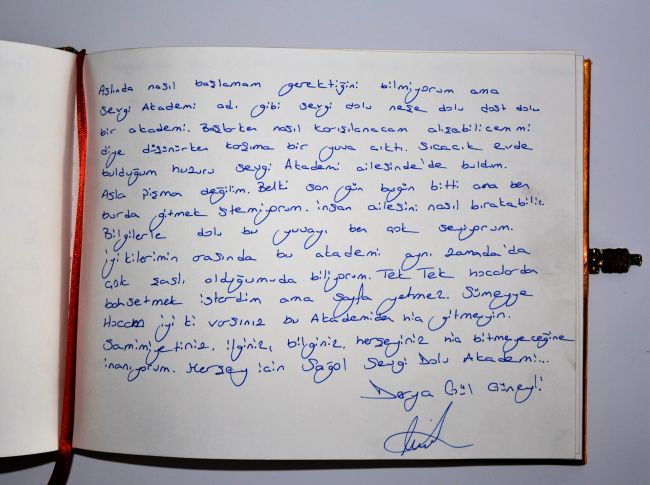 Aslında nasıl başlamam gerektiğini bilmiyorum ama
Sevgi Akademi adı gibi sevgi dolu neşe dolu dost dolu
bir akademi. Başlarken nasıl karışılanacam alışabilicem mi
diye düşünürken koşıma bir yuva çıktı. Sıcacık evde
bulduğum huzuru Sevgi Akademi ailesinde'de buldum.
Asla pişma değilim. Belki son gün bugün bitti ama ben
burda gitmek istemiyorum. insan ailesini nasıl bırakabilir.
Bilgilerle dolu bu yuvayı ben çok seviyorum.
iyikilerimin arasında bu akademi aynı zamada'da
çok şaslı olduğumuda biliyorum. Tek Tek hocalarda
bahsetmek isterdim ama sayfa yetmez. Sümeyye
Hocam iyi ki varsınız bu Akademiden hiç gitmeyin.
Samimiyetiniz, ilginiz, bilginiz, herşeyiniz hiç bitmeyeceğine
inanıyorum. Herşey için Sağol Sevgi Dolu Akademi...
Derya Gül Güneyli